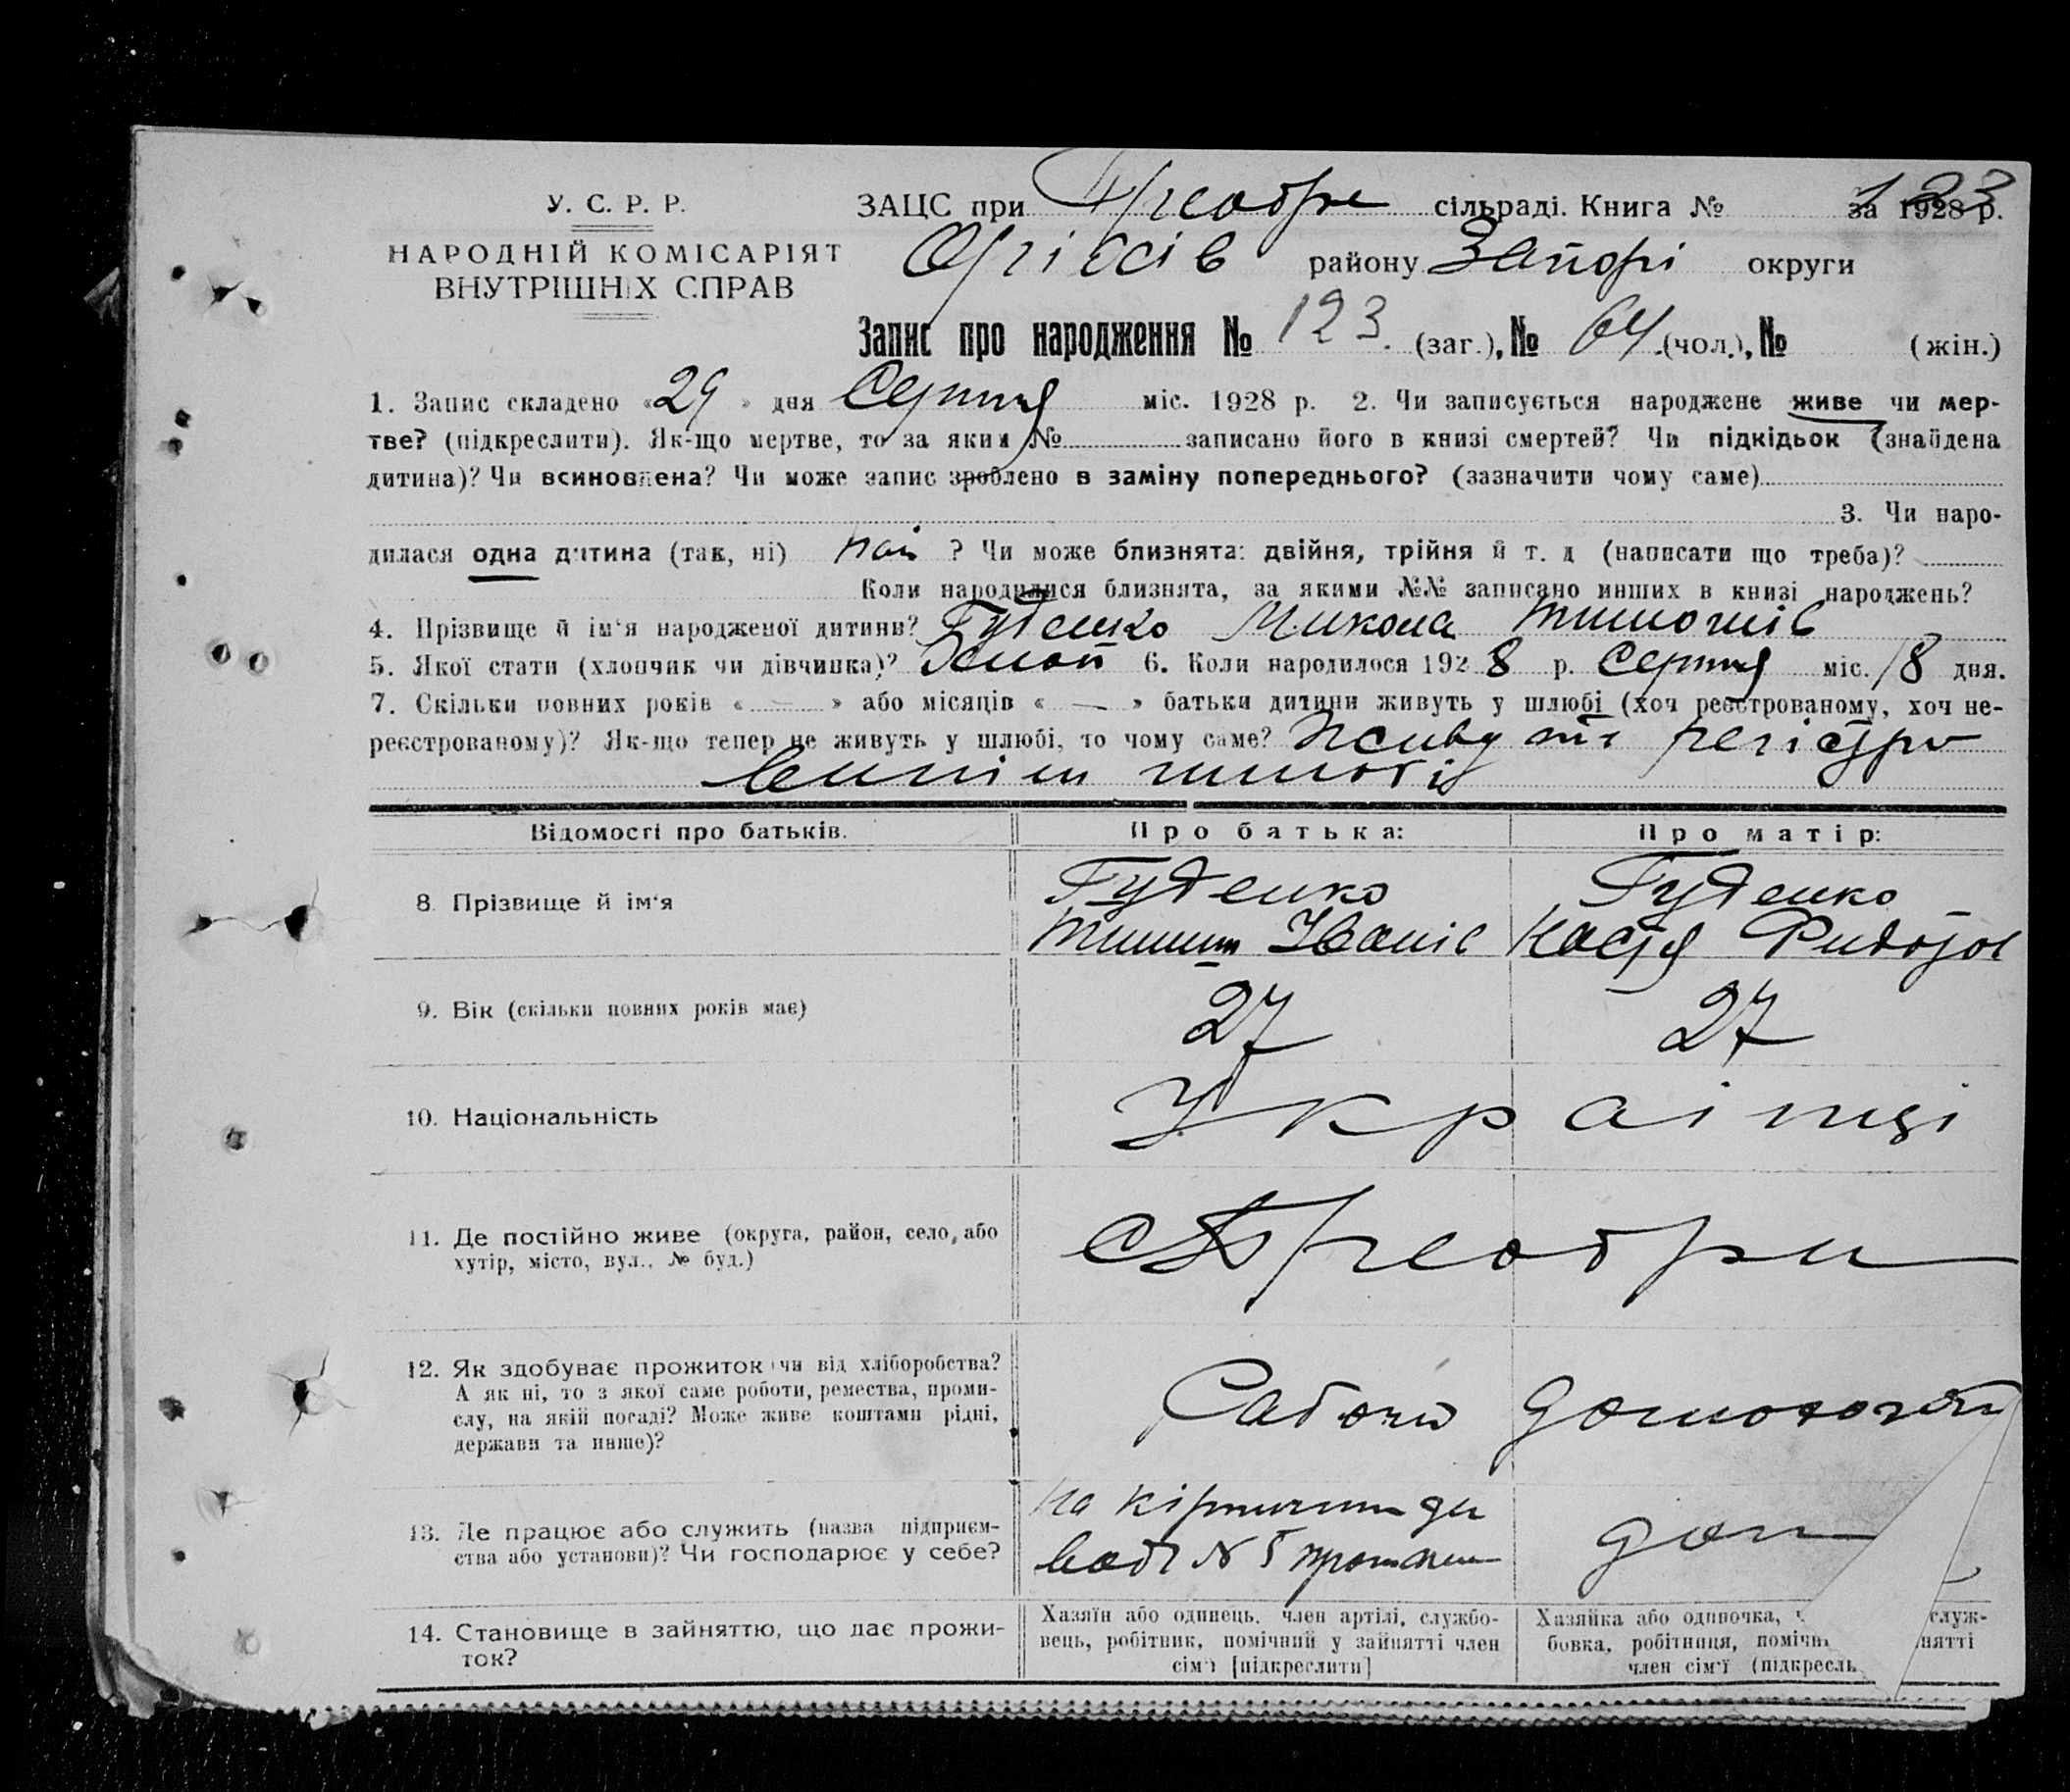 123
У. С. Р. Р.
ЗАЦС при Преобре сільраді. Книга № за 1928 р.
НАРОДНІЙ КОМІСАРІЯТ
ВНУТРІШНІХ СПРАВ
Оріхів району Запорі округи
Запис про народження № 123. (заг.), № 64 (чол.), № (жін.)
1. Запис складено «29» дня Серпня міс. 1928 р. 2. Чи записується народжене живе чи мер-
тве? (підкреслити). Як-що мертве, то за яким № записано його в книзі смертей? Чи підкідьок (знайдена
дитина)? Чи всиновлена? Чи може запис зроблено в заміну попереднього? (зазначити чому саме)
3. Чи наро-
дилася одна дитина (так, ні) так ? Чи може близнята: двійня, трійня й т. д (написати що треба)?
Коли народилися близнята, за якими №№ записано инших в книзі народжень?
4. Прізвище й ім'я народженої дитини? Губенко Микола Тимошів
5. Якої стати (хлопчик чи дівчинка)? 6. Коли народилося 1928 р. Серпня міс. 18 дня.
7. Скільки повних років « — » або місяців « — » батьки дитини живуть у шлюбі (хоч реєстрованому, хоч не-
реєстрованому)? Як-що тепер не живуть у шлюбі, то чому саме? Живуть регістро
ванім шлюбі
Відомості про батьків.
Про батька:
Про матір:
8. Прізвище й ім'я
Губенко
Тимиш Іванів
Губенко
Настя
9. Вік (скільки повних років має)
27
27
10. Національність
Українці
11. Де постійно живе (округа, район, село, або
хутір, місто, вул., № буд.)
с Преобра
12. Як здобуває прожиток чи від хліборобства?
А як ні, то з якої саме роботи, ремества, проми-
слу, на якій посаді? Може живе коштами рідні,
держави та инше)?
Рабочий
13. Де працює або служить (назва підприєм-
ства або установи)? Чи господарює у себе?
на кірпичним за
воді № 5
дом
14. Становище в зайняттю, що дає прожи-
ток?
Хазяїн або одинець, член артілі, службо-
вець, робітник, помічний у зайнятті член
сім'ї [підкреслити]
Хазяйка або одиночка, служ-
бовка, робітниця, помічн нятті
член сім'ї (підкресль